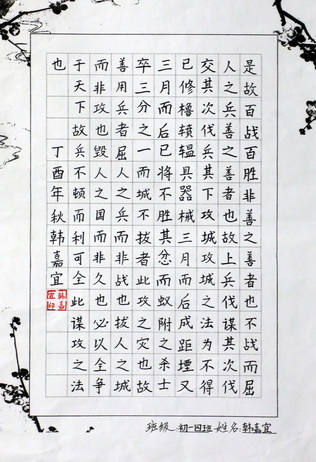 是故百战百胜非善之善者也不战而屈
人之兵善之善者也故上兵伐谋其次伐
交其次伐兵其下攻城攻城之法为不得
已修橹轒辒具器械三月而后成距堙又
三月而后已将不胜其忿而蚁附之杀士
卒三分之一而城不拔者此攻之灾也故
善用兵者屈人之兵而非战也拔人之城
而非攻也毁人之国而非久也必以全争
于天下故兵不顿而利可全此谋攻之法
也
丁酉年秋韩嘉宜
班级:初一四班 姓名:韩嘉宜